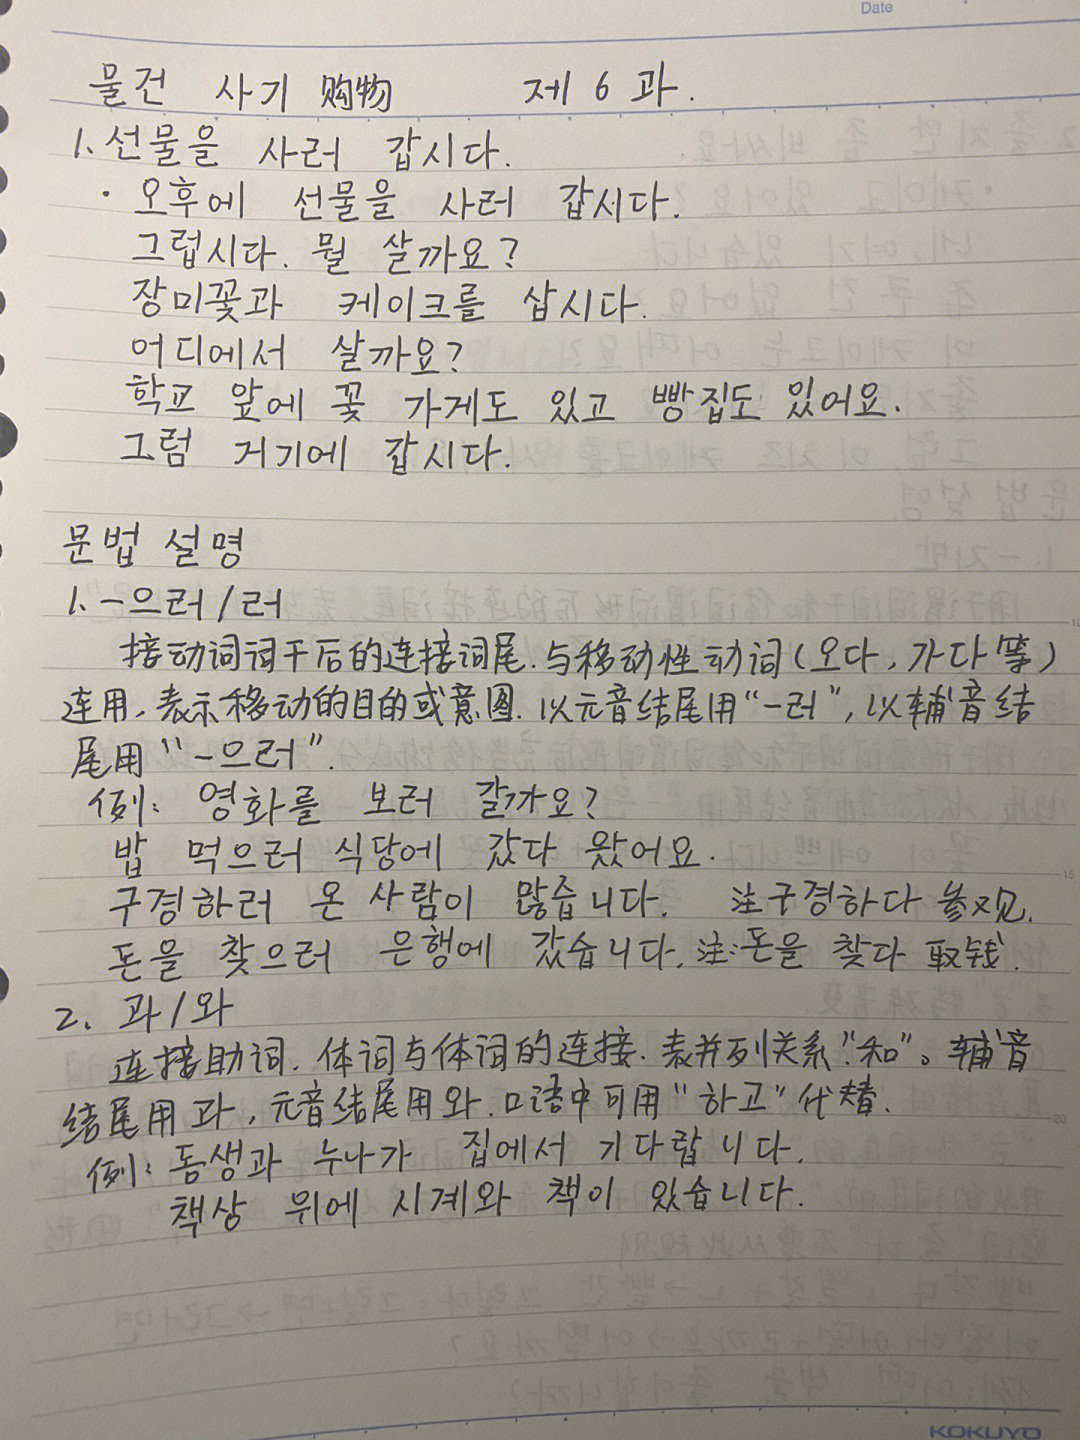 Date
물건 사기 购物 제 6 과.
1. 선물을 사러 갑시다.
· 오후에 선물을 사러 갑시다.
그럽시다. 뭘 살까요?
장미꽃과 케이크를 삽시다.
어디에서 살까요?
학교 앞에 꽃 가게도 있고 빵집도 있어요.
그럼 거기에 갑시다.
문법 설명
1. -으러/러
接动词词干后的连接词尾. 与移动性动词(오다, 가다等)
连用, 表示移动的目的或意图. 以元音结尾用"-러", 以辅音结
尾用"-으러".
例: 영화를 보러 갈까요?
밥 먹으러 식당에 갔다 왔어요.
구경하러 온 사람이 많습니다. 注구경하다 参观.
돈을 찾으러 은행에 갔습니다. 注:돈을 찾다 取钱.
2. 과/와
连接助词. 体词与体词的连接. 表并列关系"和"。辅音
结尾用과, 元音结尾用와. 口语中可用"하고"代替.
例: 동생과 누나가 집에서 기다립니다.
책상 위에 시계와 책이 있습니다.
KOKUYO